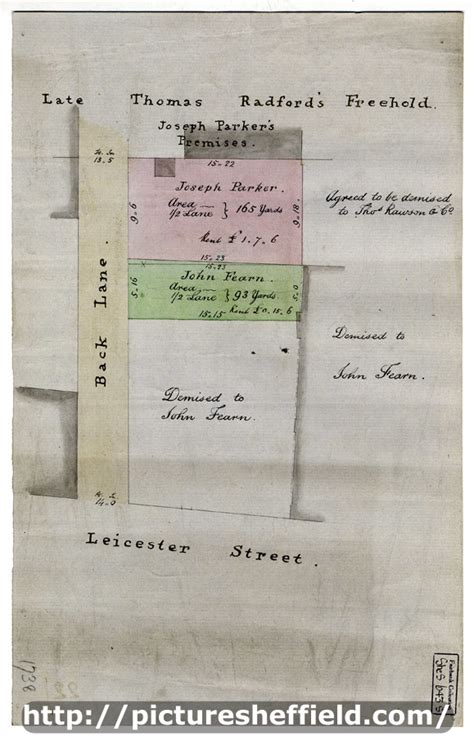 Late Thomas Radford's Freehold.
Joseph Parker's
Premises.
13.5
15-22
Joseph Parker.
Area
1/2 Lane } 165 Yards
Rent £ 1.7.6
9-6
9-18
Agreed to be demised
to Thos. Rawson & Co
15-23
15-23
John Fearn.
Area
1/2 Lane } 93 Yards
15-15 Rent £0.15.6
5-16
5-0
Back Lane.
Demised to
John Fearn.
Demised to
John Fearn.
14-0
Leicester Street.
1738
Fairbank Collection
SheS 643 S
http://picturesheffield.com/